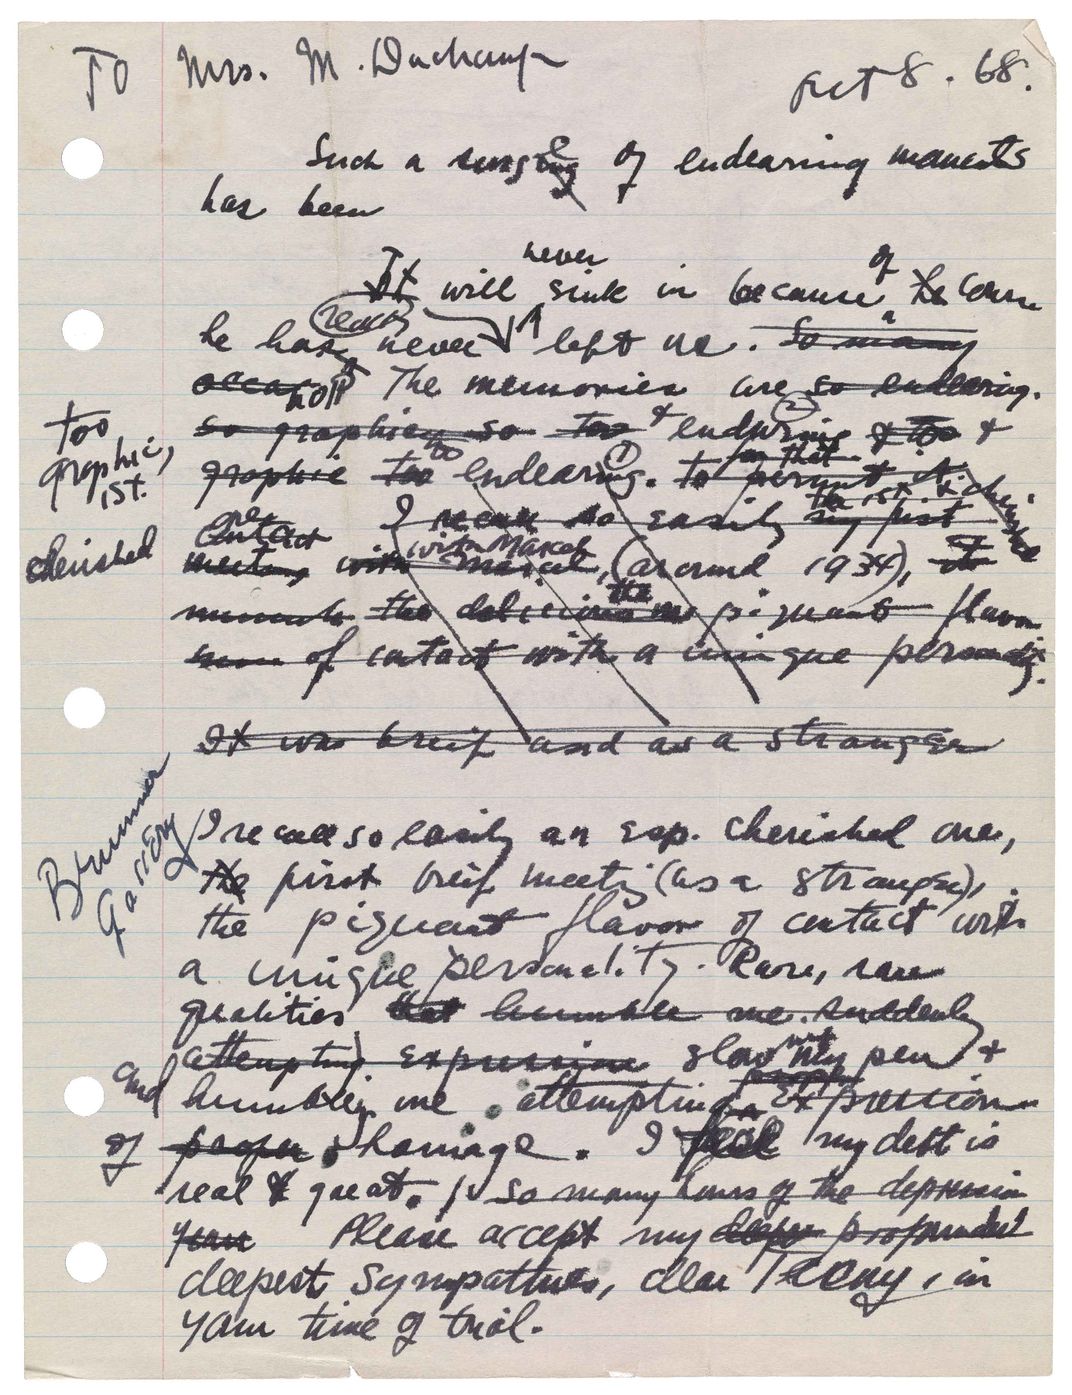 TO Mrs. M. Duchamp
Oct 8. 68.
Such a surging of endearing moments
has been
never of
It will sink in because he course
really
he has never left me. So many
occas The memories are so endearing.
too
so graphic, so too & enduring & too &
graphic,
1st.
graphic too endearing. to permit it
I recall so easily my first
the 1st
cherished
contact
meeting with Marcel, (around 1934), the
with Marcel
the delicious piquant flavor
the
of contact with a unique personality.
It was breif and as a stranger
Brummer
Gallery
I recall so easily an esp. cherished one,
the first breif meeting (as a stranger),
the piquant flavor of contact with
a unique personality. Rare, rare
qualities that humble me. suddenly
attempting expression slow my pen &
and humbling me attempting expression
of proper homage. I feel my debt is
real & great. so many hours of the depression
years Please accept my deeper profoundest
deepest sympathies, dear Teeny, in
your time of trial.